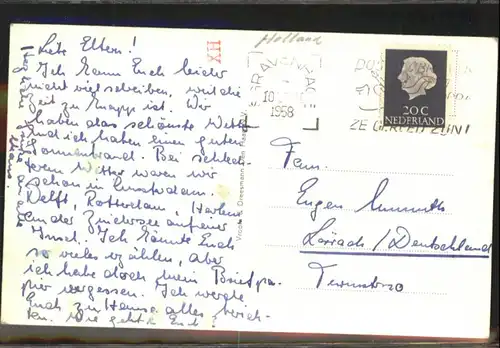 Liebe Eltern!
Ich kann Euch leider
nicht viel schreiben, weil die
Zeit zu knapp ist. Wir
haben das schönste Wetter
und ich haben einen guten
Sonnenbrand. Bei schlech-
tem Wetter waren wir
schon in Amsterdam.
Delft, Rotterdam,
an der Zuidersee auf einer
Insel. Ich könnte Euch
so vieles erzählen, aber
ich habe doch mein Briefpa-
pier vergessen. Ich werde
Euch zu Hause alles berich-
ten. Wie geht's Euch?
Holland
XH
'S GRAVENHAGE
10
1958
20 C
NEDERLAND
Fam.
Eugen
Lörrach/Deutschland